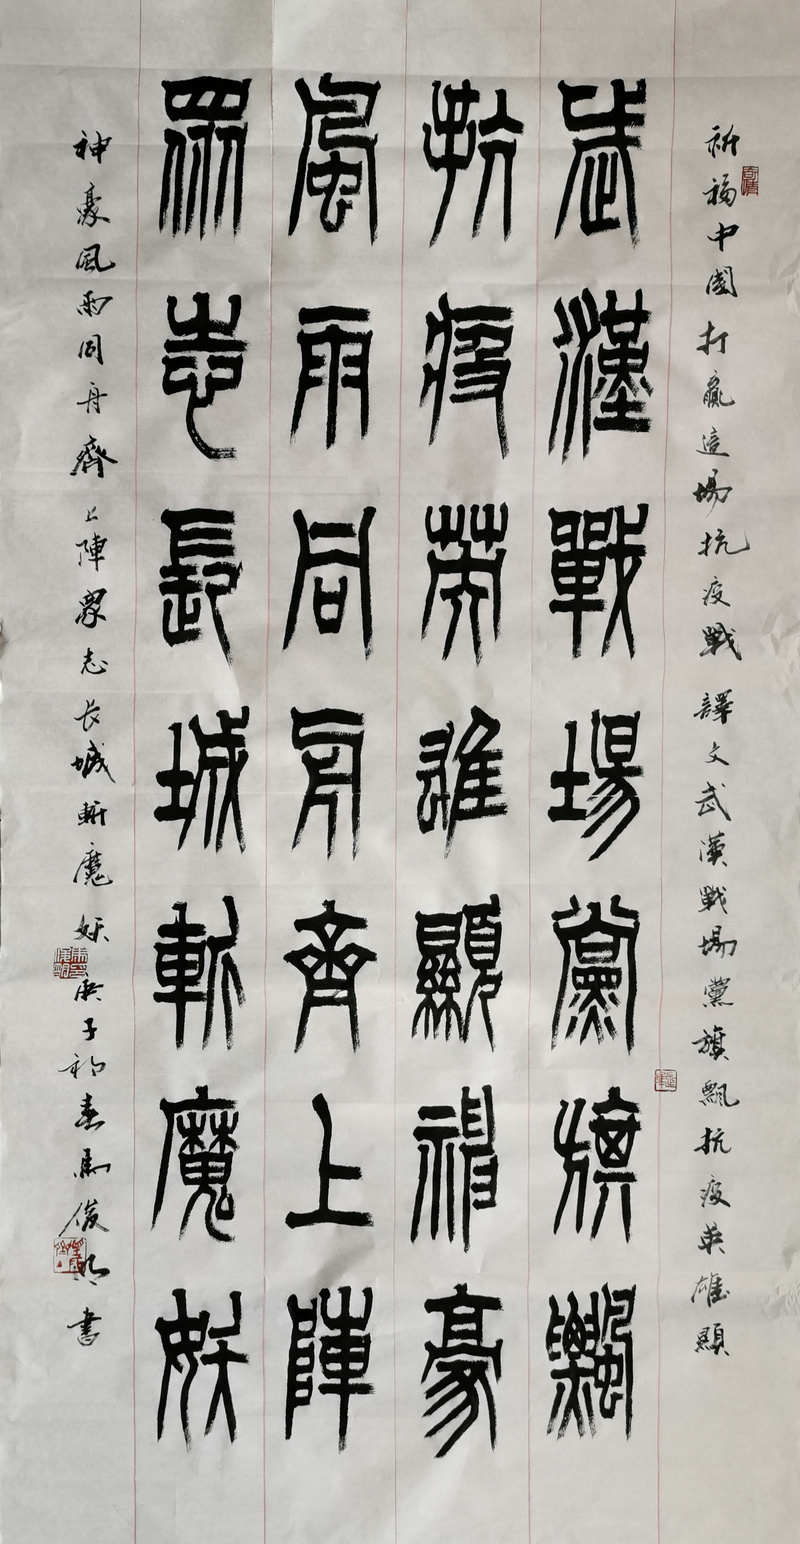 祈福中國打贏這場抗疫戰譯文武漢戰場黨旗飄抗疫英雄顯
武漢戰場黨旗飄
抗疫英雄顯神豪
風雨同舟齊上陣
眾志長城斬魔妖
神豪風雨同舟齊上陣眾志长城斬魔妖庚子初春馬俊明書